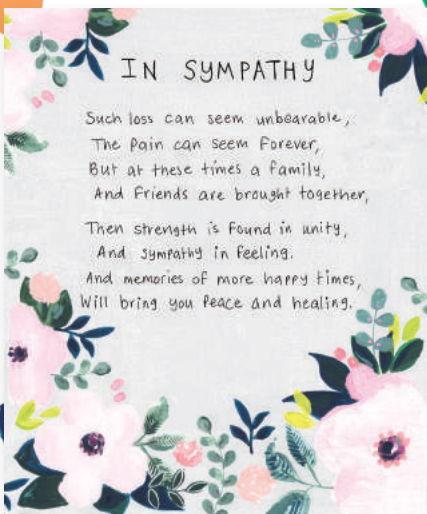 IN SYMPATHY
Such loss can seem unbearable,
The Pain can seem Forever,
But at these times a family,
And Friends are brought together,
Then strength is Found in unity,
And sympathy in feeling.
And memories of more happy times,
Will bring you Peace and healing.